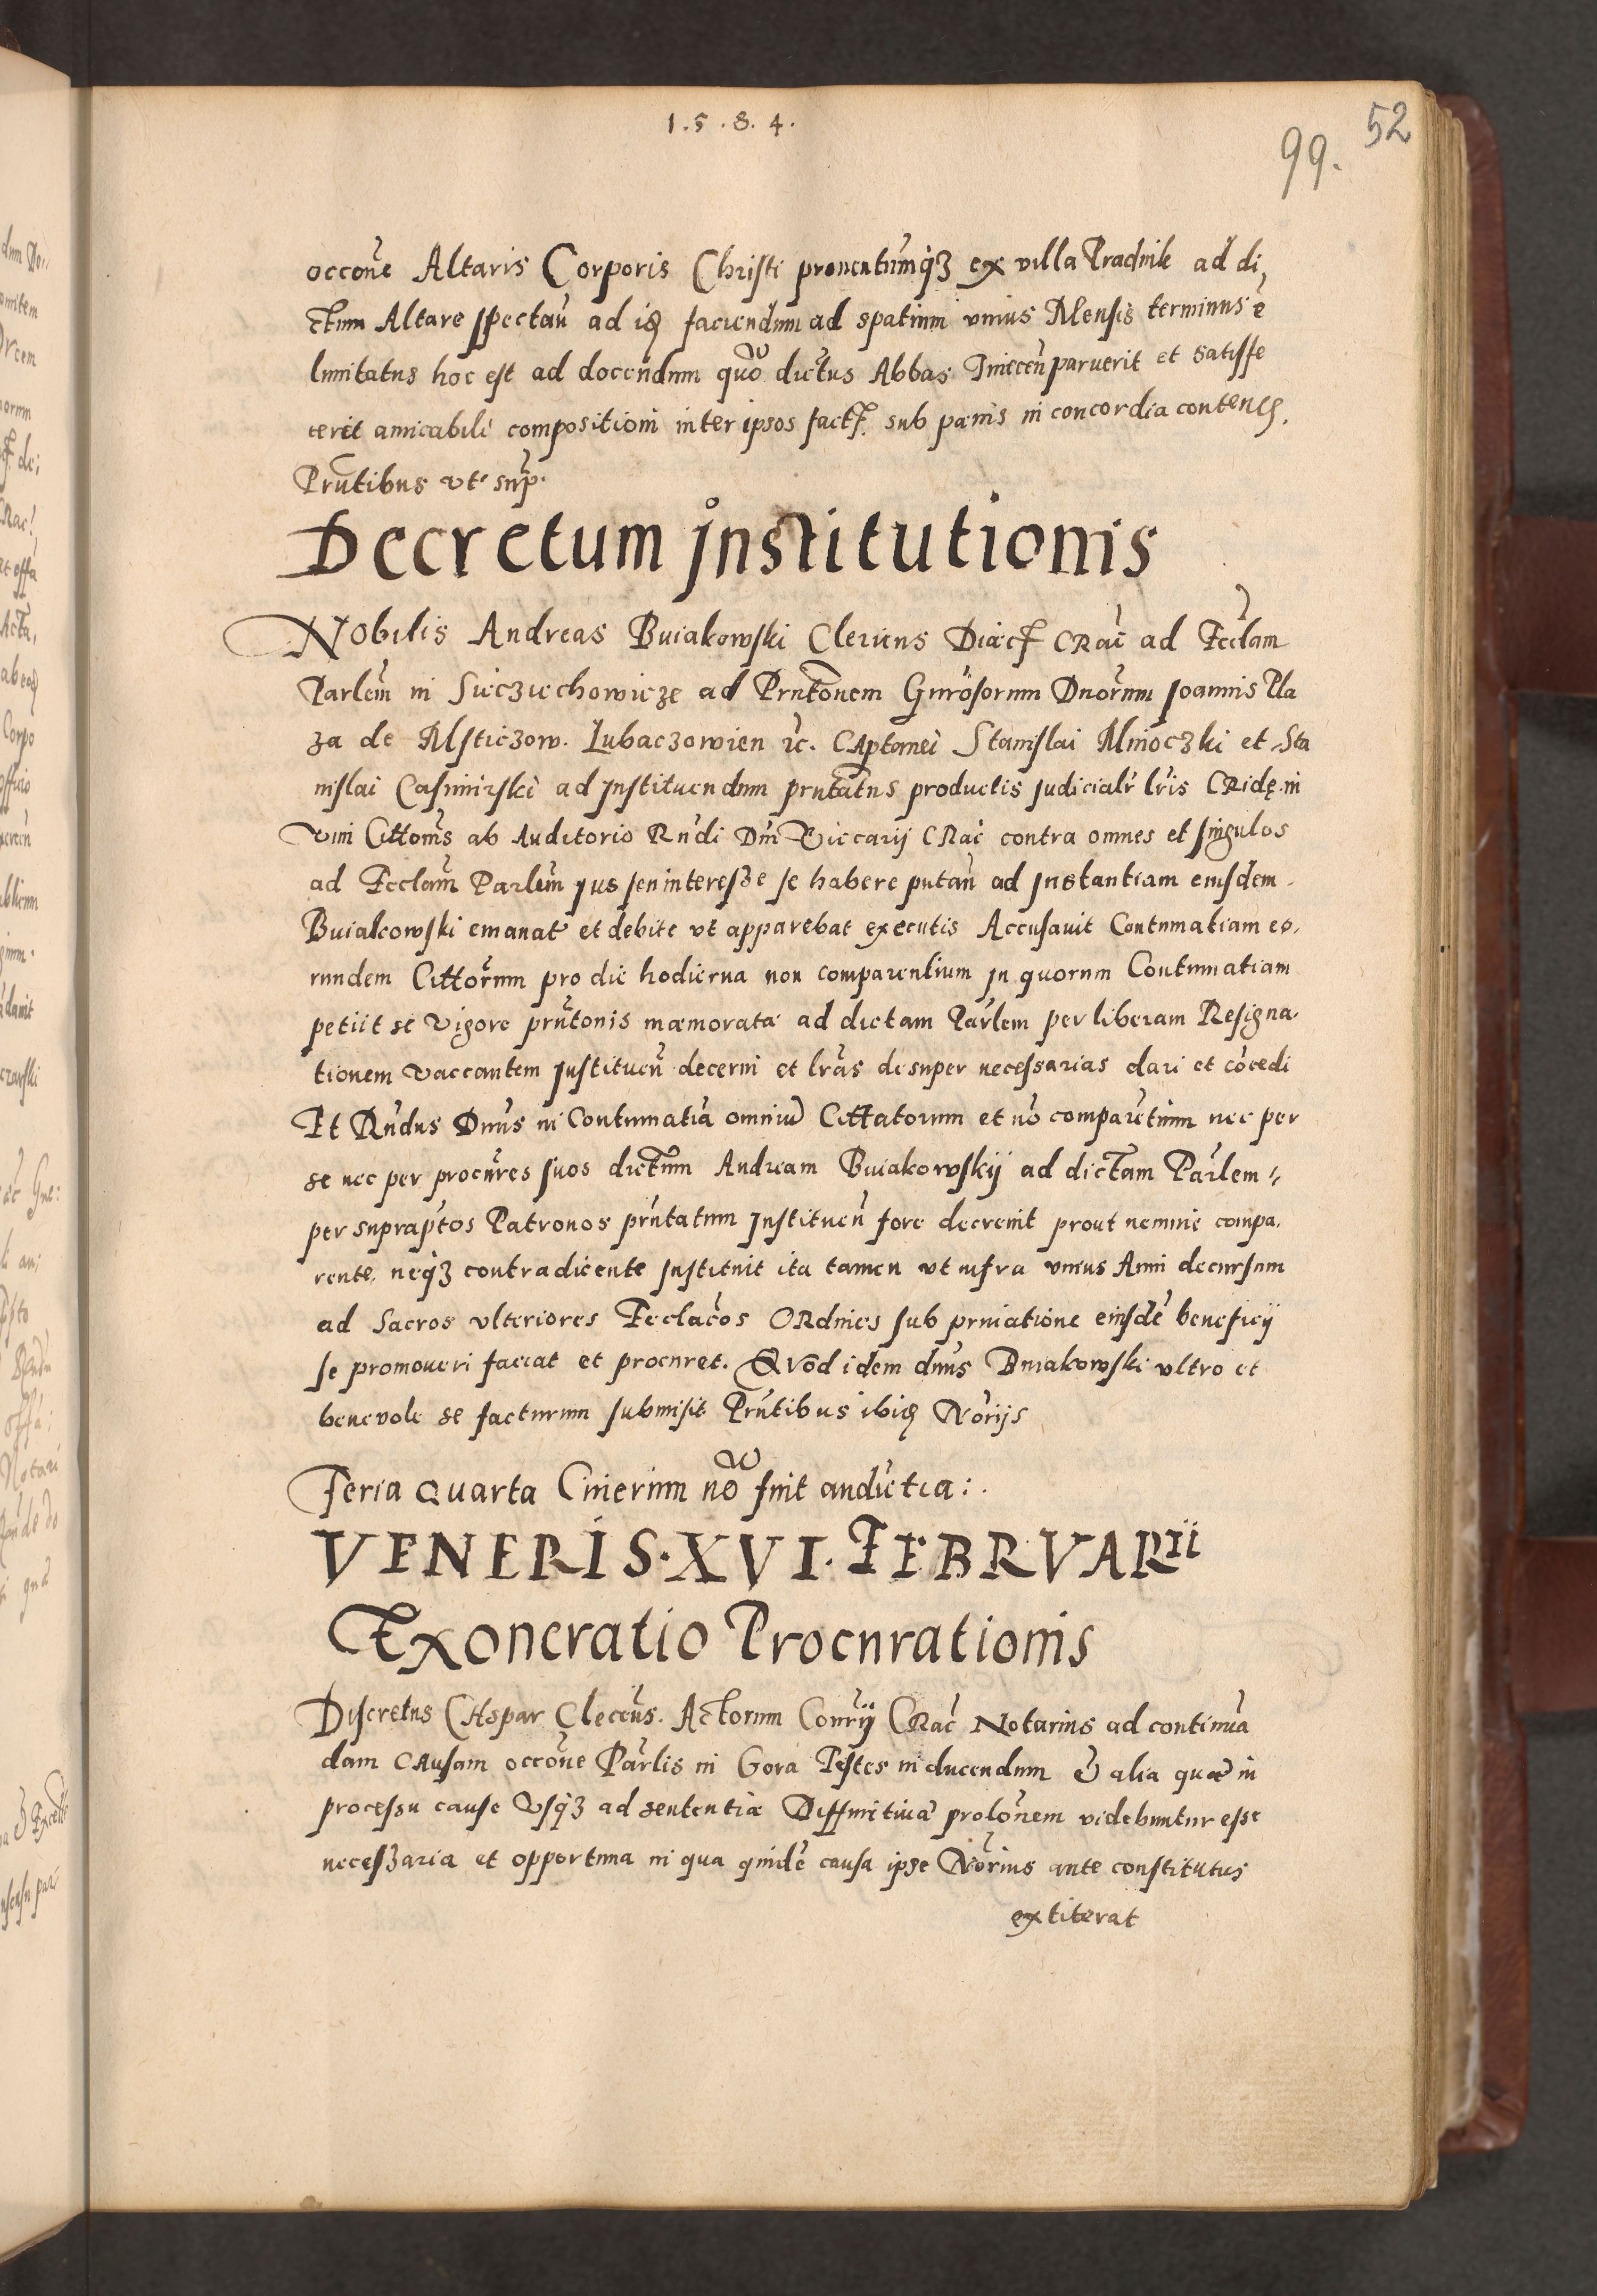 1.5.8.4.
52
99.
occone Altaris Corporis Christi prouentumqз ex villa Pradnik ad di,
ctum Altare spectan ad id faciendum ad spatium vnius Mensis terminus e
limitatus hoc est ad docendum quo dictus Abbas Tinecen paruerit et satisfe
cerit amicabili compositioni inter ipsos fact. sub pænis in concordia contentis.
Prntibus vt sup.
Decretum institutionis
Nobilis Andreas Buiakowski Clericus Diæc CRac ad Ecclam
Parlem in Sieciechowicze ad Prntonem Gnrosorum Dnorum Joannis Pla
za de Msticzow. Lubaczowien &c. CAptanei Stanislai Mnioczki et Sta
nislai Casimirski ad instituendum prntatus productis judicialr lris CRidę in
vim Cittonis ab Auditorio Rndi Dni Viccarij CRac contra omnes et singulos
ad Ecclam Parlem jus seu interesse se habere putan ad instantiam eiusdem.
Buiakowski emanat et debite vt apparebat executis Accusauit Contumatiam eo,
rundem Cittorum pro die hodierna non comparentium in quorum Contumatiam
petiit se vigore prntonis mæmorata ad dictam Parlem per liberam Resigna,
tionem vaccantem instituen decerni et lras desuper necessarias dari et cocedi
Et Rndus Dnus in Contumatia omniu Cittatorum et no comparetium nec per
se nec per procures suos dictum Andream Buiakowskij ad dictam Parlem
per supraptos Patronos prntatum instituen fore decreuit prout nemine compa,
rente, neqз contradicente instituit ita tamen vt infra vnius Anni decursum
ad Sacros vlteriores Ecclacos ORdines sub priuatione eiusde beneficij
se promoueri faciat et procuret. Qvod idem dnus Buiakowski vltro et
beneuole se facturum submisit Prntibus ibid Norijs
Feria Quarta Cinerum no fuit audietia:.
VENERIS.XVI.FEBRVARII
Exoneratio Procurationis
Discretus CAspar Cleccus. Actorum Conrij CRac Notarius ad continua
dam CAusam occone Parlis in Gora Testes inducendum & alia quæ in
processu cause vsqз ad sententiæ Diffinitiua prolonem videbuntur esse
necessaria et opportuna in qua quide causa ipse Norius ante constitutus
extiterat